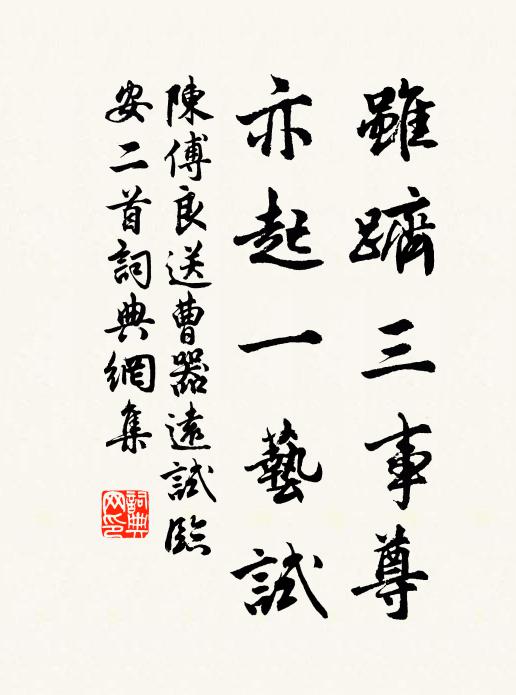 雖躋三事尊
亦起一藝試
陳傅良送曹器遠試臨
安二首詞典網集
詞典网印